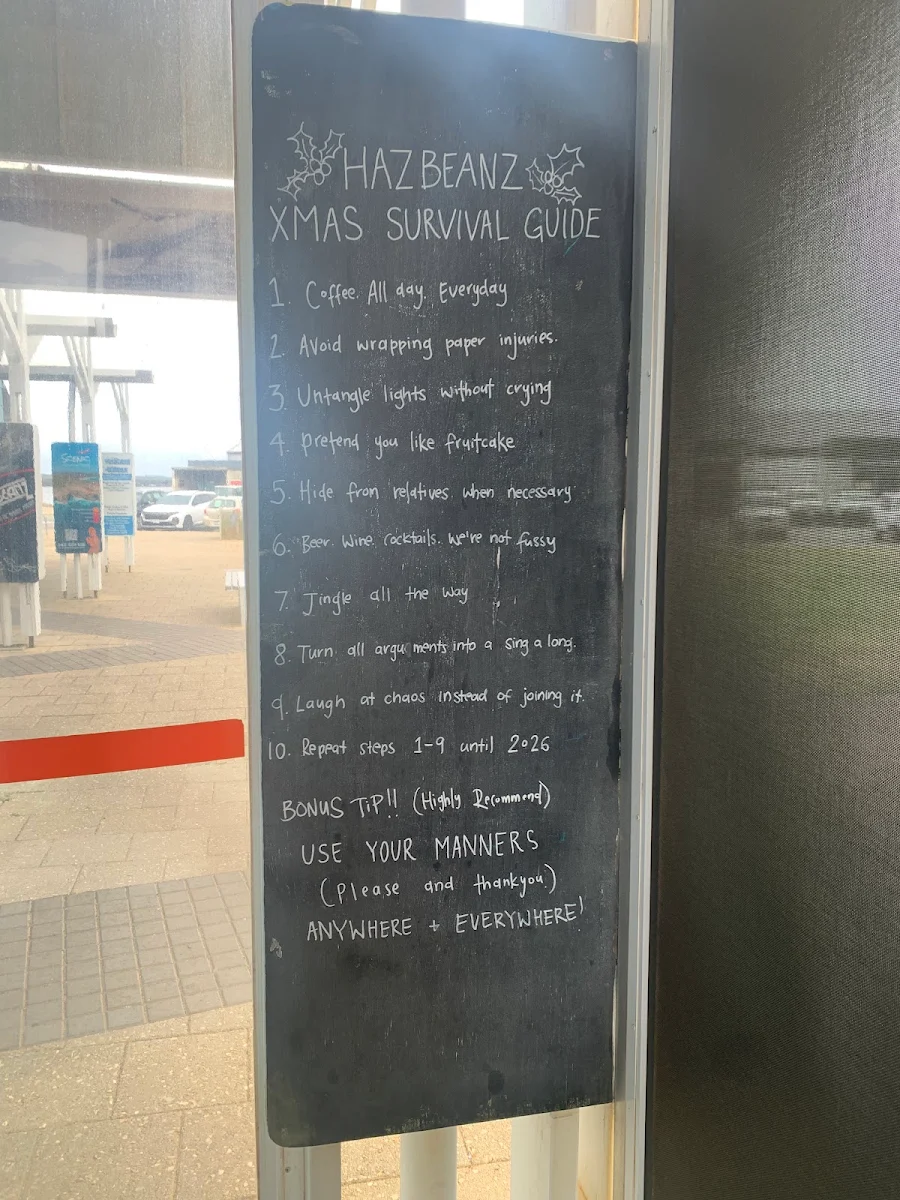 HAZBEANZ
XMAS SURVIVAL GUIDE
1. Coffee. All day. Everyday
2. Avoid wrapping paper injuries.
3. Untangle lights without crying
4. pretend you like fruitcake
5. Hide from relatives when necessary
6. Beer. Wine. Cocktails. we're not fussy
7. Jingle all the way
8. Turn all arguments into a sing a long.
9. Laugh at chaos instead of joining it.
10. Repeat steps 1-9 until 2026
BONUS TiP!! (Highly Recommend)
USE YOUR MANNERS
(Please and thankyou.)
ANYWHERE + EVERYWHERE!